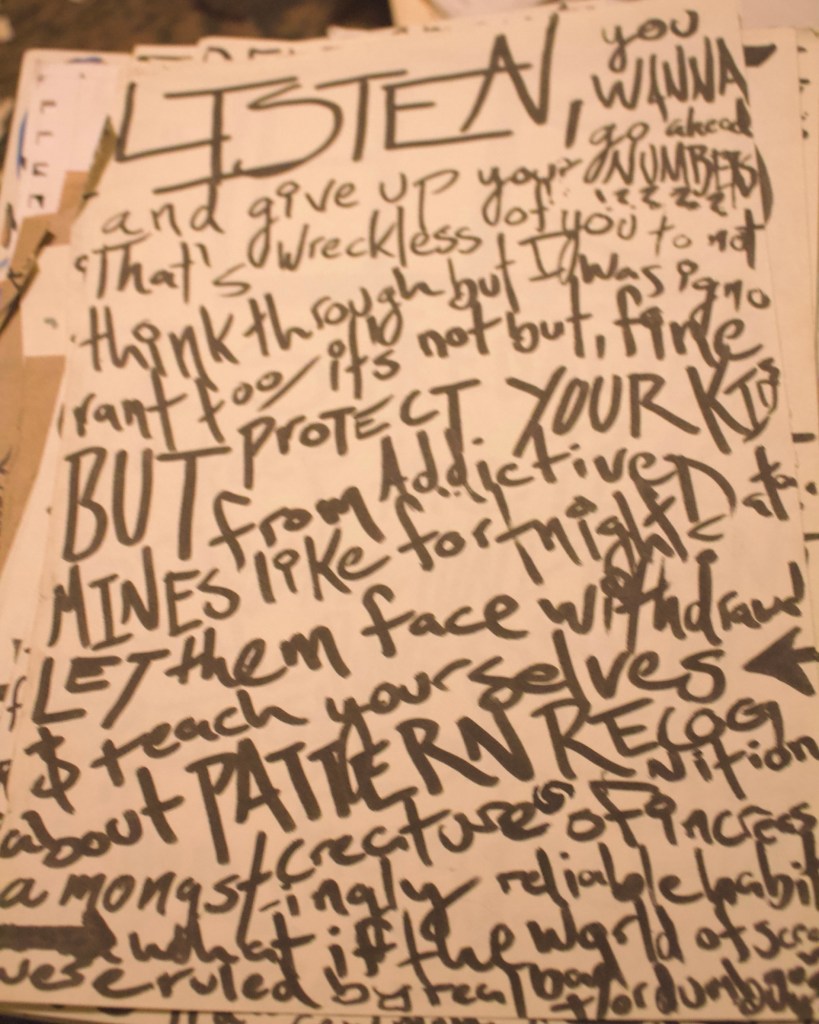 LISTEN, you
WANNA
go ahead
and give up your NUMBERS
That's wreckless of you to not
think through but I was igno
rant too/its not but, fine
BUT PROTECT YOUR KIDS
from Addictive Data
MINES like fortnight
LET them face withdrawl
$ teach yourselves
about PATTERN RECOG
nition
amongst creatures of increas
ingly reliable habit
what if the world of
were ruled by real